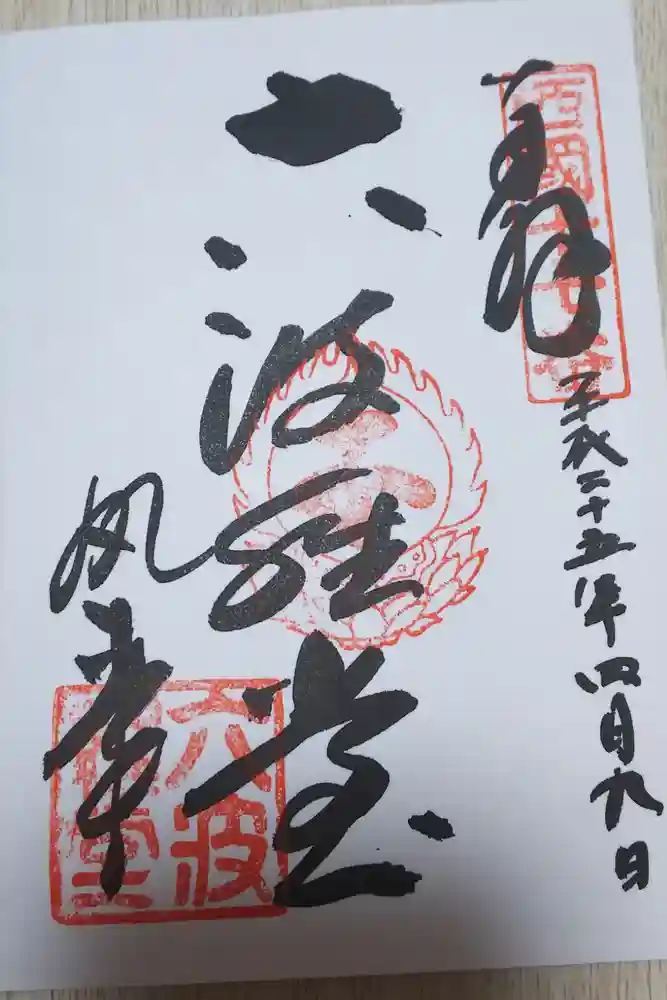 奉拝
西国十七番
平成二十五年四月九日
六波羅堂
六波羅堂